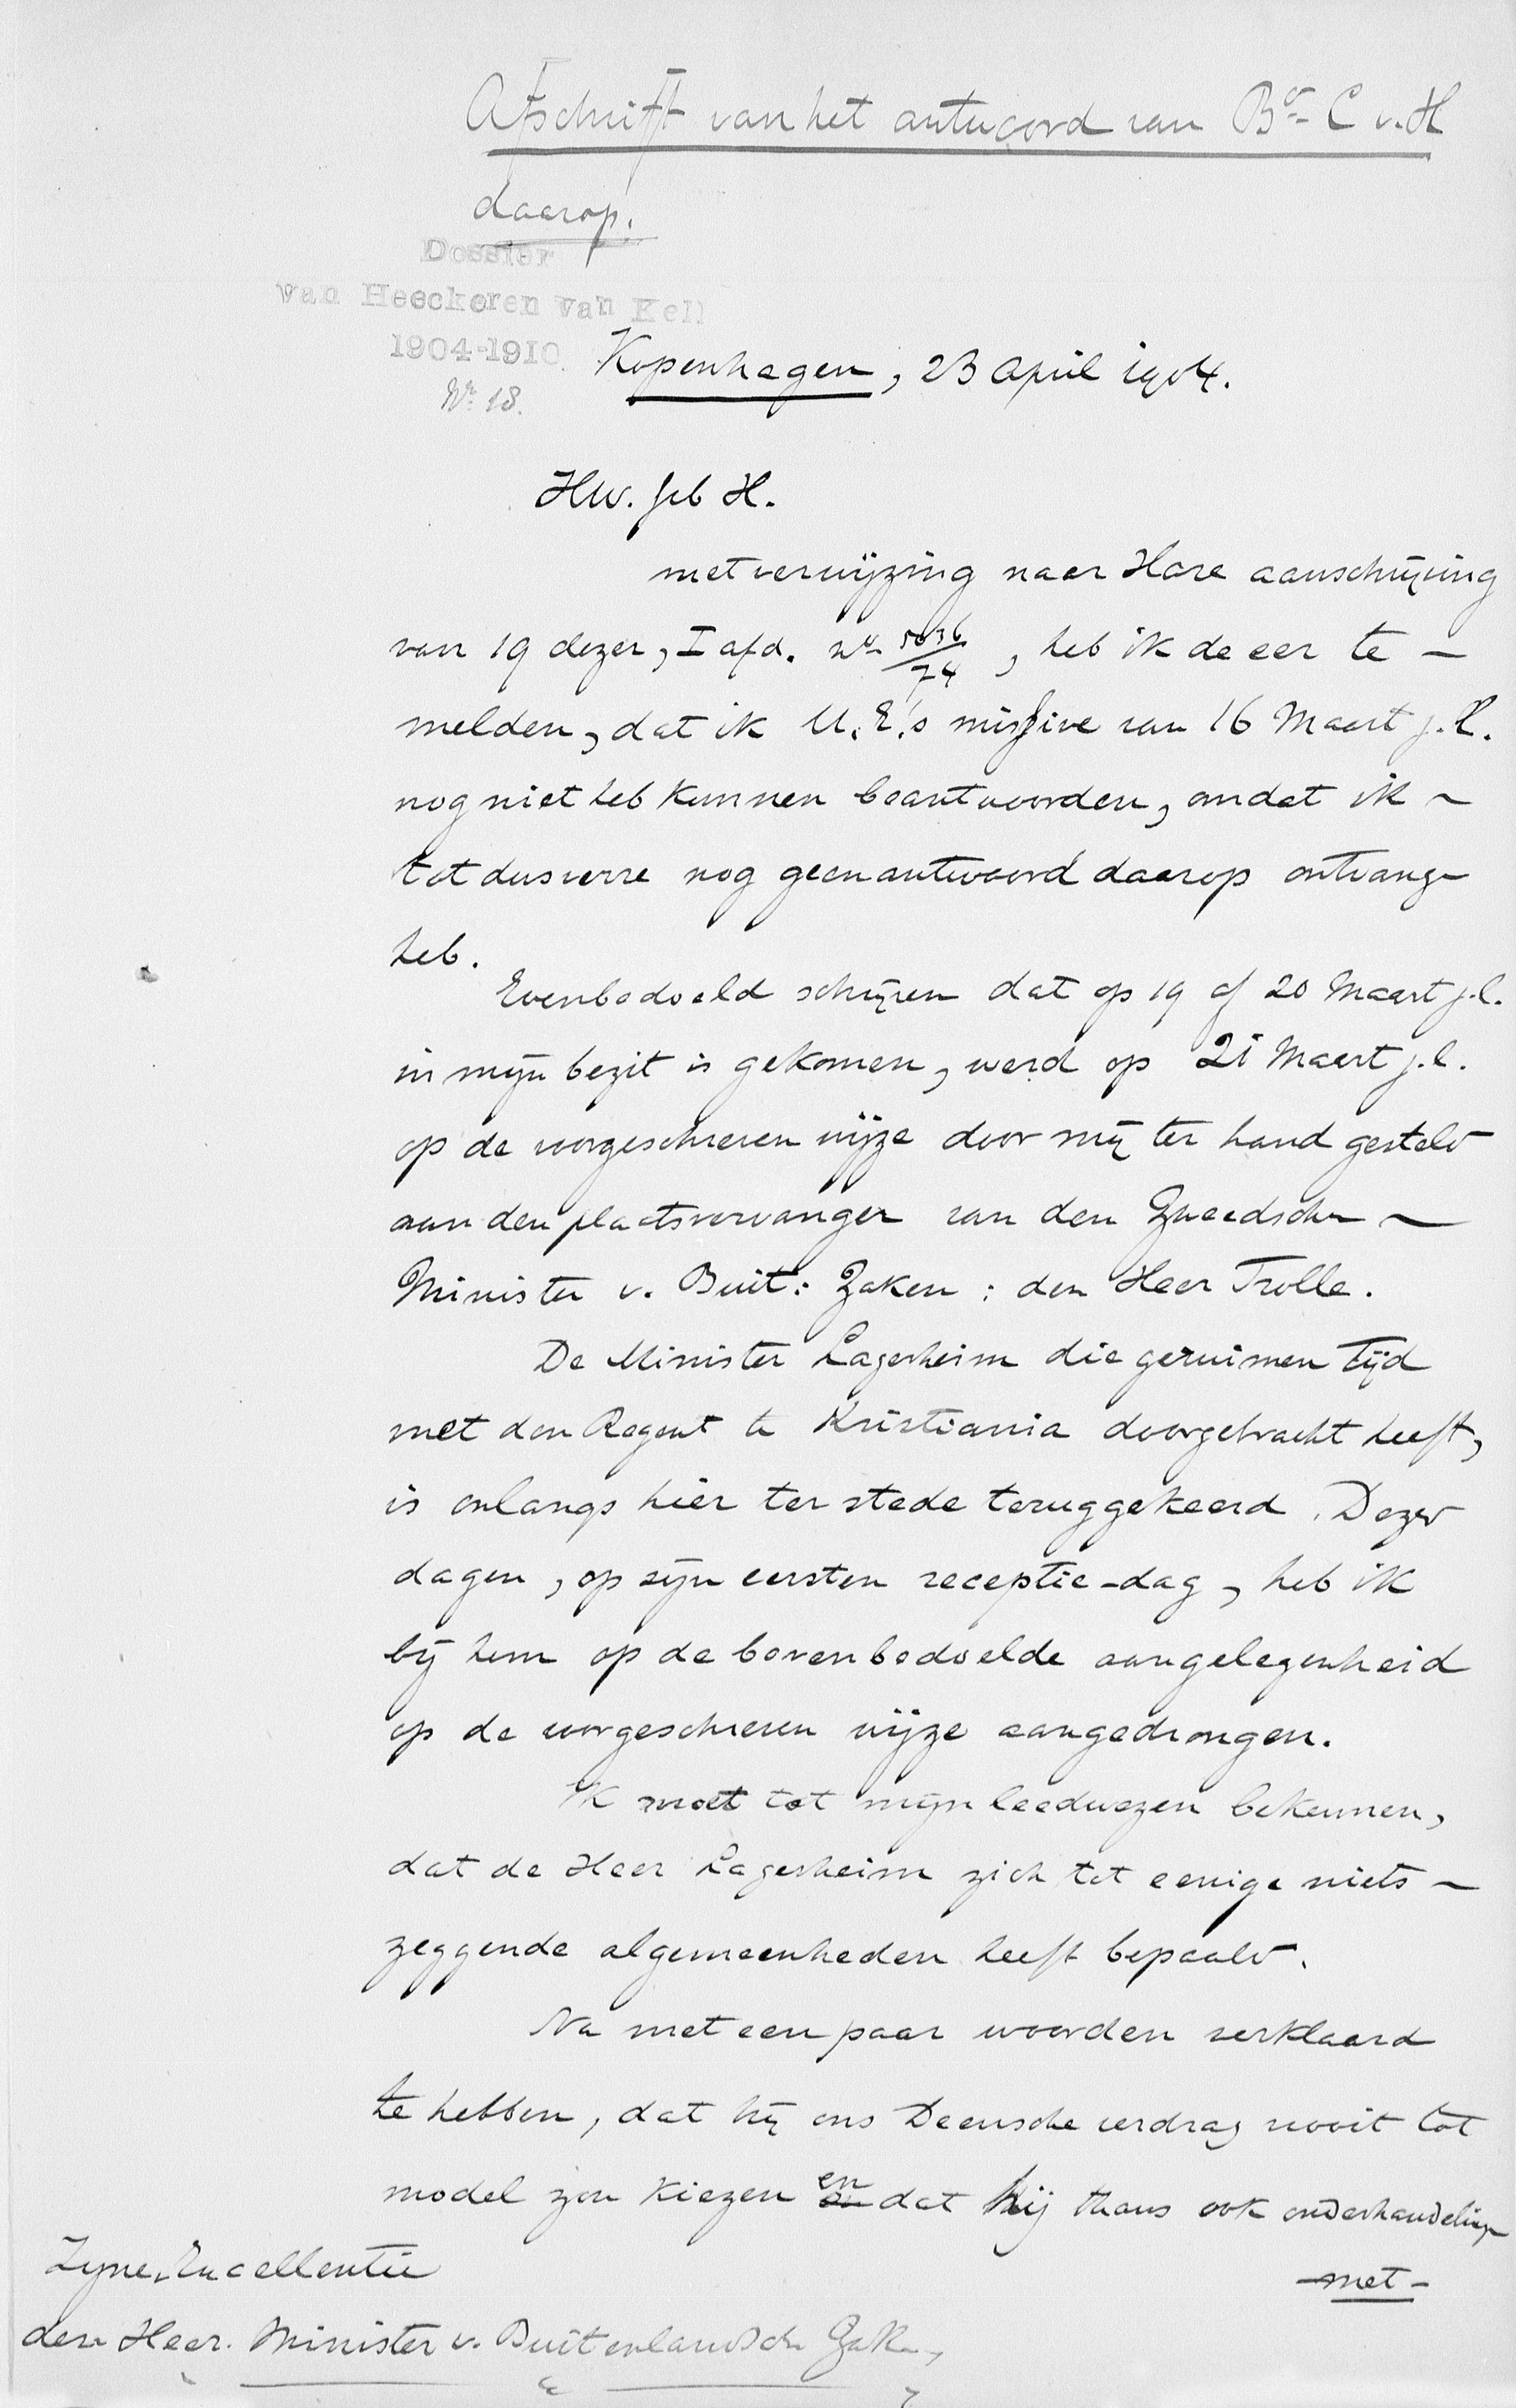 Afschrift van het antwoord van Bᵒⁿ C v. H
daarop.
Dossier
van Heeckeren van Kell
1904-1910.
Nº 18.
Kopenhagen, 23 April 1904.
HW. Geb H.
met verwijzing naar Hare aanschrijving
van 19 dezer, I afd. nº 5036/74, heb ik de eer te —
melden, dat ik U.E.'s missive van 16 Maart j.l.
nog niet heb kunnen beantwoorden, omdat ik ~
tot dusverre nog geen antwoord daarop ontvangen
heb.
Evenbedoeld schrijven dat op 19 of 20 Maart j.l.
in mijn bezit is gekomen, werd op 21 Maart j.l.
op de voorgeschreven wijze door mij ter hand gesteld
aan den plaatsvervanger van den Zweedschen ~
Minister v. Buit: Zaken: den Heer Trolle.
De Minister Lagerheim die geruimen tijd
met den Regent te Kristiania doorgebracht heeft,
is onlangs hier ter stede teruggekeerd. Dezer
dagen, op zijn eersten receptie-dag, heb ik
bij hem op de bovenbedoelde aangelegenheid
op de voorgeschreven wijze aangedrongen.
Ik moet tot mijn leedwezen bekennen,
dat de Heer Lagerheim zich tot eenige niets ~
zeggende algemeenheden heeft bepaald.
Na met een paar woorden verklaard
te hebben, dat hij ons Deensche verdrag nooit tot
model zou kiezen en dat hij thans ook onderhandelingen
-met-
Zyne Excellentie
den Heer Minister v. Buitenlandsche Zaken,